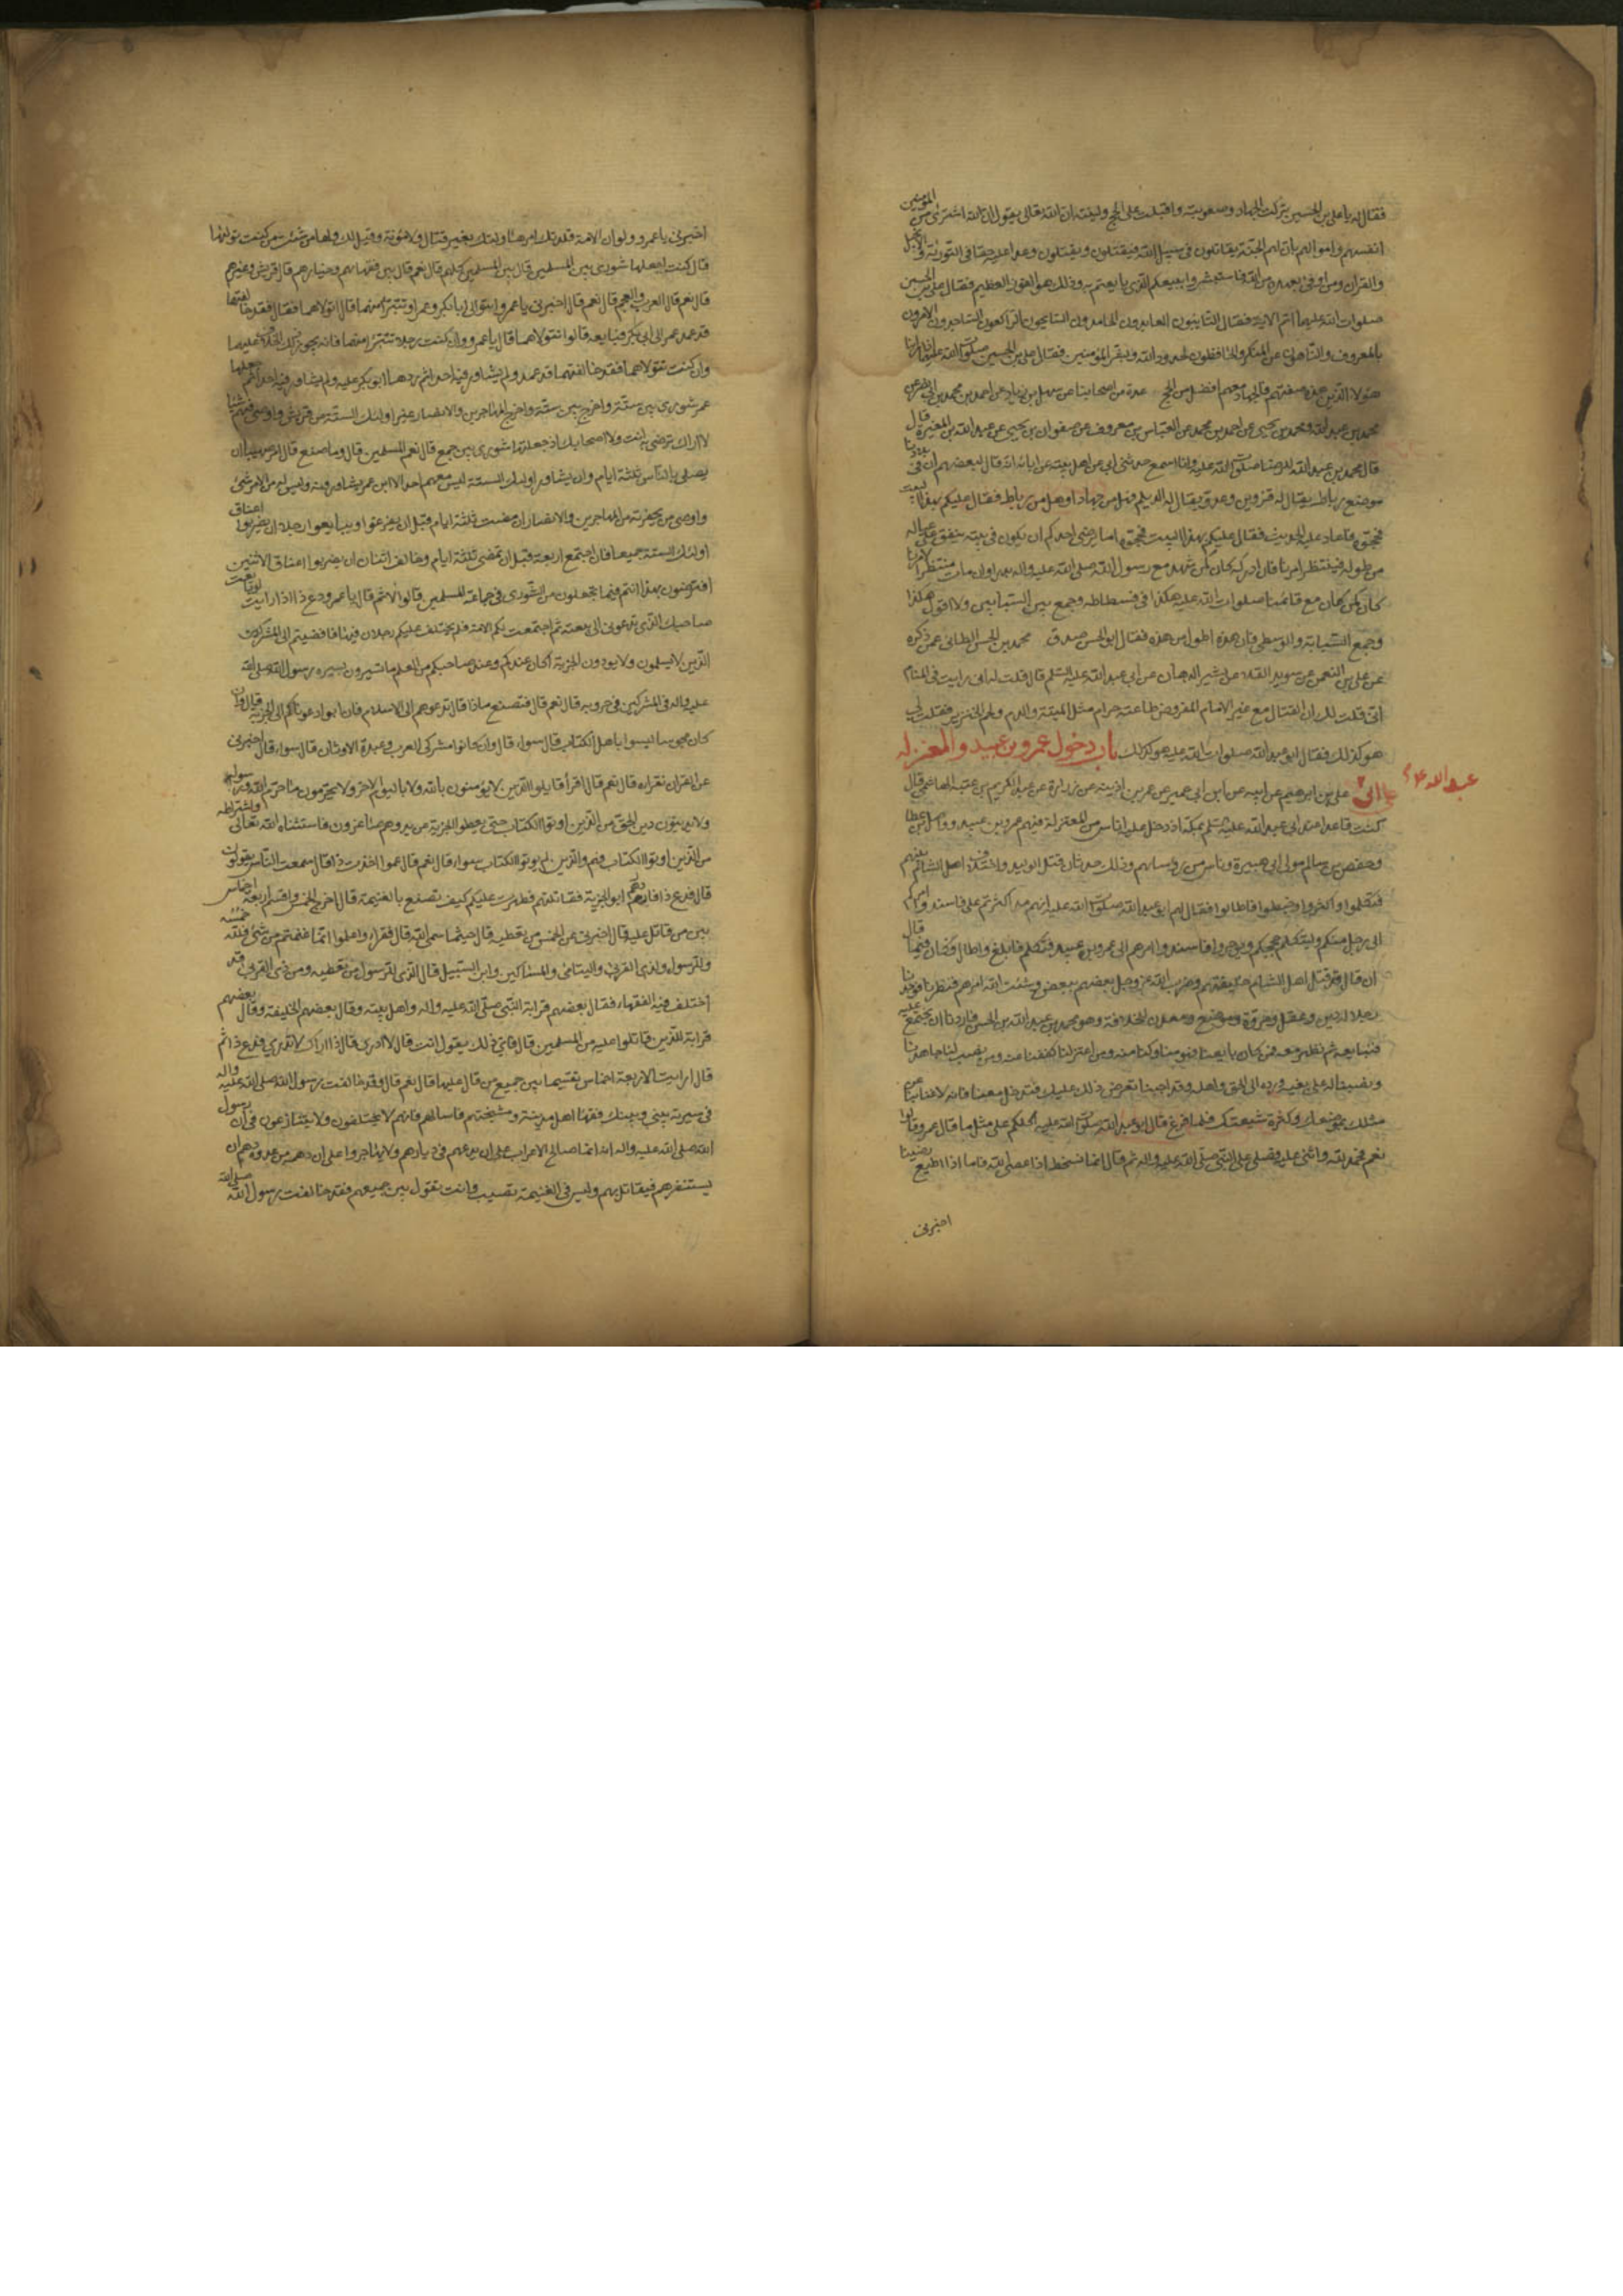 فقال له يا علي بن الحسين تركت الجهاد وصعوبته واقبلت على الحج ولينته ان الله تعالى يقول ان الله اشترى من المؤمنين
انفسهم واموالهم بان لهم الجنة يقاتلون في سبيل الله فيقتلون ويقتلون وعدا عليه حقا في التورية والانجيل
والقران ومن اوفى بعهده من الله فاستبشروا ببيعكم الذي بايعتم به وذلك هو الفوز العظيم فقال علي بن الحسين
صلوات الله عليهما اتم الاية فقال التايبون العابدون الحامدون السايحون الراكعون الساجدون الامرون
بالمعروف والناهون عن المنكر والحافظون لحدود الله وبشر المؤمنين فقال علي بن الحسين صلوات الله عليه اذا راينا
هؤلاء الذين هذه صفتهم فالجهاد معهم افضل من الحج عدة من اصحابنا عن سهل بن زياد عن احمد بن محمد بن ابي نصر عن
محمد بن عبد الله ومحمد بن يحيى عن احمد بن محمد عن العباس بن معروف عن صفوان بن يحيى عن عبد الله بن المغيرة قال
قال محمد بن عبد الله للرضا صلوات الله عليه وانا اسمع حدثني ابي عن اهل بيته عن ابائه انه قال لبعضهم ان في بلادنا
موضع رباط يقال له قزوين وعدو يقال له الديلم فهل من جهاد او هل من رباط فقال عليكم بهذا البيت
فحجوه فاعاد عليه الحديث فقال عليكم بهذا البيت فحجوه اما يرضى احدكم ان يكون في بيته ينفق على عياله
من طوله فينتظر امرنا فان ادركه كان كمن شهد مع رسول الله صلى الله عليه واله بدرا وان مات منتظرا لامرنا
كان كمن كان مع قائمنا صلوات الله عليه هكذا في فسطاطه وجمع بين السبابتين ولا اقول هكذا
وجمع السبابة والوسطى فان هذه اطول من هذه فقال ابو الحسن صدق محمد بن الحسن الطائي عمن ذكره
عن علي بن النعمن عن سويد القلا عن بشير الدهان عن ابي عبد الله عليه السلم قال قلت له اني رايت في المنام
اني قلت لك ان القتال مع غير الامام المفروض طاعته حرام مثل الميتة والدم ولحم الخنزير فقلت لي
هو كذلك فقال ابو عبد الله صلوات الله عليه هو كذلك باب دخول عمرو بن عبيد والمعتزلة
على ابي عبد الله
علي بن ابرهيم عن ابيه عن ابن ابي عمير عن عمر بن اذينة عن زرارة عن عبد الكريم بن عتبة الهاشمي قال
كنت قاعدا عند ابي عبد الله عليه السلم بمكة اذ دخل عليه اناس من المعتزلة فيهم عمرو بن عبيد وواصل بن عطا
وحفص بن سالم مولى ابي هبيرة وناس من رؤسائهم وذلك حدثان قتل الوليد واختلاف اهل الشام بينهم
فتكلموا واكثروا وخطبوا فاطالوا فقال لهم ابو عبد الله صلوات الله عليه انهم قد اكثرتم علي فاسندوا امركم
الى رجل منكم وليتكلم بحججكم ويوجز وا فاسندوا امرهم الى عمرو بن عبيد فتكلم فابلغ واطال فكان فيما قال
ان قال قد قتل اهل الشام خليفتهم وضرب الله عز وجل بعضهم ببعض وشتت الله امرهم فنظرنا فوجدنا
رجلا له دين وعقل ومروة وموضع ومعدن للخلافة وهو محمد بن عبد الله بن الحسن فاردنا ان نجتمع عليه
فنبايعه ثم نظهر معه فمن كان بايعنا فهو منا وكنا منه ومن اعتزلنا كففنا عنه ومن نصب لنا جاهدنا
ونصبنا له على بغيه ورده الى الحق واهله وقد احببنا ان نعرض ذلك عليك فتدخل معنا فانه لا غنا بنا عن
مثلك لموضعك وكثرة شيعتك فلما فرغ قال ابو عبد الله صلوات الله عليه اكلكم على مثل ما قال عمرو قالوا
نعم فحمد الله واثنى عليه وصلى على النبي صلى الله عليه واله ثم قال انما نسخط اذا عصي الله فاما اذا اطيع رضينا
اخبرني
اخبرني يا عمرو ولو ان الامة قلدتك امرها وولتك بغير قتال ولا مؤنة وقيل لك ولها من شئت من كنت توليها
قال كنت اجعلها شورى بين المسلمين قال بين المسلمين كلهم قال نعم قال بين فقهائهم وخيارهم قال قريش وغيرهم
قال نعم قال العرب والعجم قال نعم قال اخبرني يا عمرو اتتولى ابا بكر وعمر او تتبرأ منهما قال اتولاهما فقال فقد خالفتهما
قد عهد عمر الى ابي بكر فبايعه قالوا نتولاهما قال يا عمرو ان كنت رجلا تتبرأ منهما فانه يجوز لك الخلاف عليهما
وان كنت تتولاهما فقد خالفتهما قد عهد ولم يشاور فيه احدا ثم ردها ابو بكر عليه ولم يشاور فيه احدا ثم جعلها
عمر شورى بين ستة واخرج منها جميع المهاجرين والانصار غير اولئك الستة من قريش واوصى فيهم شيئا
لا اراك ترضى به انت ولا اصحابك اذ جعلتها شورى بين جميع المسلمين قال وما صنع قال امر صهيبا ان
يصلي بالناس ثلثة ايام وان يشاور اولئك الستة ليس معهم احد الا ابن عمر يشاورونه وليس له من الامر شئ
واوصى من بحضرته من المهاجرين والانصار ان مضت ثلثة ايام قبل ان يفرغوا او يبايعوا رجلا ان يضربوا اعناق
اولئك الستة جميعا فان اجتمع اربعة قبل ان تمضي ثلثة ايام وخالف اثنان ان يضربوا اعناق الاثنين
افترضون بهذا انتم فيما تجعلون من الشورى في جماعة المسلمين قالوا لا ثم قال يا عمرو دع ذا ارايت لو بايعت
صاحبك الذي تدعوني الى بيعته ثم اجتمعت لكم الامة فلم يختلف عليكم رجلان فيها فافضيتم الى المشركين
الذين لا يسلمون ولا يؤدون الجزية اكان عندكم وعند صاحبكم من العلم ما تسيرون بسيرة رسول الله صلى الله
عليه واله في المشركين في حروبه قال نعم قال فتصنع ماذا قال ندعوهم الى الاسلام فان ابوا دعوناهم الى الجزية قال وان
كان مجوسا ليسوا باهل الكتاب قال سواء قال وان كانوا مشركي العرب وعبدة الاوثان قال سواء قال اخبرني
عن القران تقراه قال نعم قال اقرأ قاتلوا الذين لا يؤمنون بالله ولا باليوم الاخر ولا يحرمون ما حرم الله ورسوله
ولا يدينون دين الحق من الذين اوتوا الكتاب حتى يعطوا الجزية عن يد وهم صاغرون فاستثناه الله تعالى واشتراطه
من الذين اوتوا الكتاب فهم والذين لم يؤتوا الكتاب سواء قال نعم قال عمن اخذت ذا قال سمعت الناس يقولون
قال فدع ذا فان هم ابوا الجزية فقاتلتهم فظهرت عليهم كيف تصنع بالغنيمة قال اخرج الخمس واقسم اربعة اخماس
بين من قاتل عليه قال اخبرني عن الخمس من تعطيه قال حيثما سمى الله قال فقرا واعلموا انما غنمتم من شئ فان لله خمسه
وللرسول ولذي القربى واليتامى والمساكين وابن السبيل قال الذي للرسول من تعطيه ومن ذي القربى قال قد
اختلف فيه الفقهاء فقال بعضهم قرابة النبي صلى الله عليه واله واهل بيته وقال بعضهم الخليفة وقال بعضهم
قرابة الذين قاتلوا عليه من المسلمين قال فاي ذلك تقول انت قال لا ادري قال فاراك لا تدري فدع ذا ثم
قال ارايت الاربعة اخماس تقسمها بين جميع من قاتل عليها قال نعم قال فقد خالفت رسول الله صلى الله عليه واله
في سيرته بيني وبينك فقهاء اهل مدينة ومشيختهم فاسالهم فانهم لا يختلفون ولا يتنازعون في ان رسول
الله صلى الله عليه واله انما صالح الاعراب على ان يدعهم في ديارهم ولا يهاجروا على ان دهمه من عدوه دهم ان
يستنفرهم فيقاتل بهم وليس في الغنيمة نصيب وانت تقول بين جميعهم فقد خالفت رسول الله صلى الله